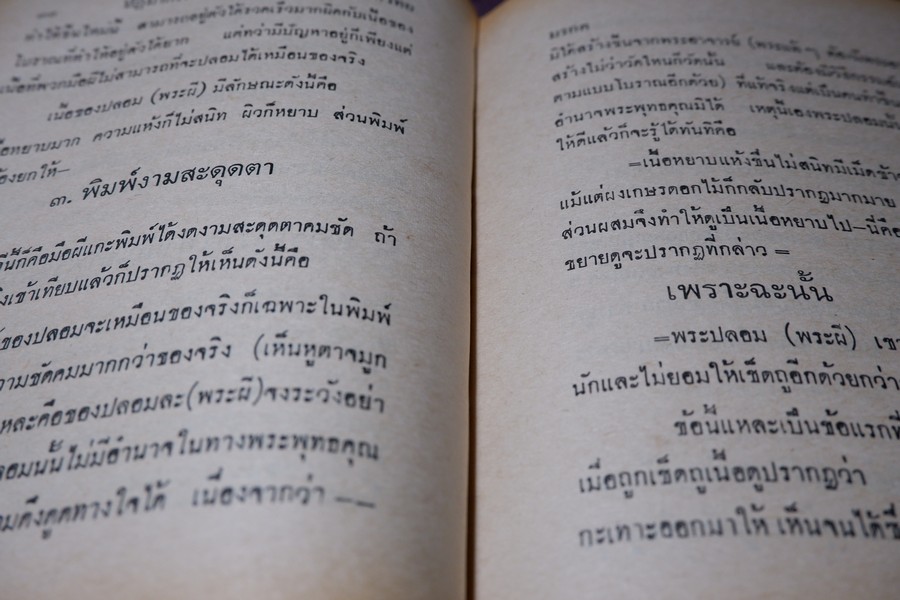 ทำให้ขึ้นใหม่นี้ สามารถอยู่ตัวได้รวดเร็วมากผิดกับเนื้อของ
โบราณที่ทำให้อยู่ตัวได้ยาก แต่ทว่ามีปัญหาอยู่ก็เพียงแต่
เนื้อที่พวกมือผีไม่สามารถที่จะปลอมได้เหมือนของจริง
เนื้อของปลอม (พระผี) มีลักษณะดังนี้คือ
หยาบมาก ความแห้งก็ไม่สนิท ผิวก็หยาบ ส่วนพิมพ์
ต้องยกให้—
๓. พิมพ์งามสะดุดตา
นี้ก็คือมือผีแกะพิมพ์ได้งดงามสะดุดตาคมชัด ถ้า
เข้าเทียบแล้วก็ปรากฏให้เห็นดังนี้คือ
ของปลอมจะเหมือนของจริงก็เฉพาะในพิมพ์
ความชัดคมมากกว่าของจริง (เห็นหูตาจมูก
แหละคือของปลอมละ(พระผี)จงระวังอย่า
ปลอมนั้นไม่มีอำนาจในทางพระพุทธคุณ
ดึงดูดทางใจได้ เนื่องจากว่า — —
มรดก
มิได้สร้างขึ้นจากพระอาจารย์ (พระแท้ๆ ต้องมี
สร้างไม่ว่าวัดไหนก็วัดนั้น และต้องมี
ตามแบบโบราณอีกด้วย) ที่แท้จริงแต่เป็นคนทำขึ้น
อำนาจพระพุทธคุณมิได้ เหตุนี้เองพระปลอมนั้น
ให้ดีแล้วก็จะรู้ได้ทันทีคือ
=เนื้อหยาบแห้งขึ้นไม่สนิทมีเม็ด
แม้แต่ผงเกษรดอกไม้ก็กลับปรากฏมากมาย
ส่วนผสมจึงทำให้ดูเป็นเนื้อหยาบไป–นี่คือ
ขยายดูจะปรากฏที่กล่าว =
เพราะฉะนั้น
=พระปลอม (พระผี) เขา
นักและไม่ยอมให้เช็ดถูอีกด้วยกว่า
ข้อนี้แหละเป็นข้อแรกที่
เมื่อถูกเช็ดถูเนื้อดูปรากฏว่า
กะเทาะออกมาให้ เห็นจนได้